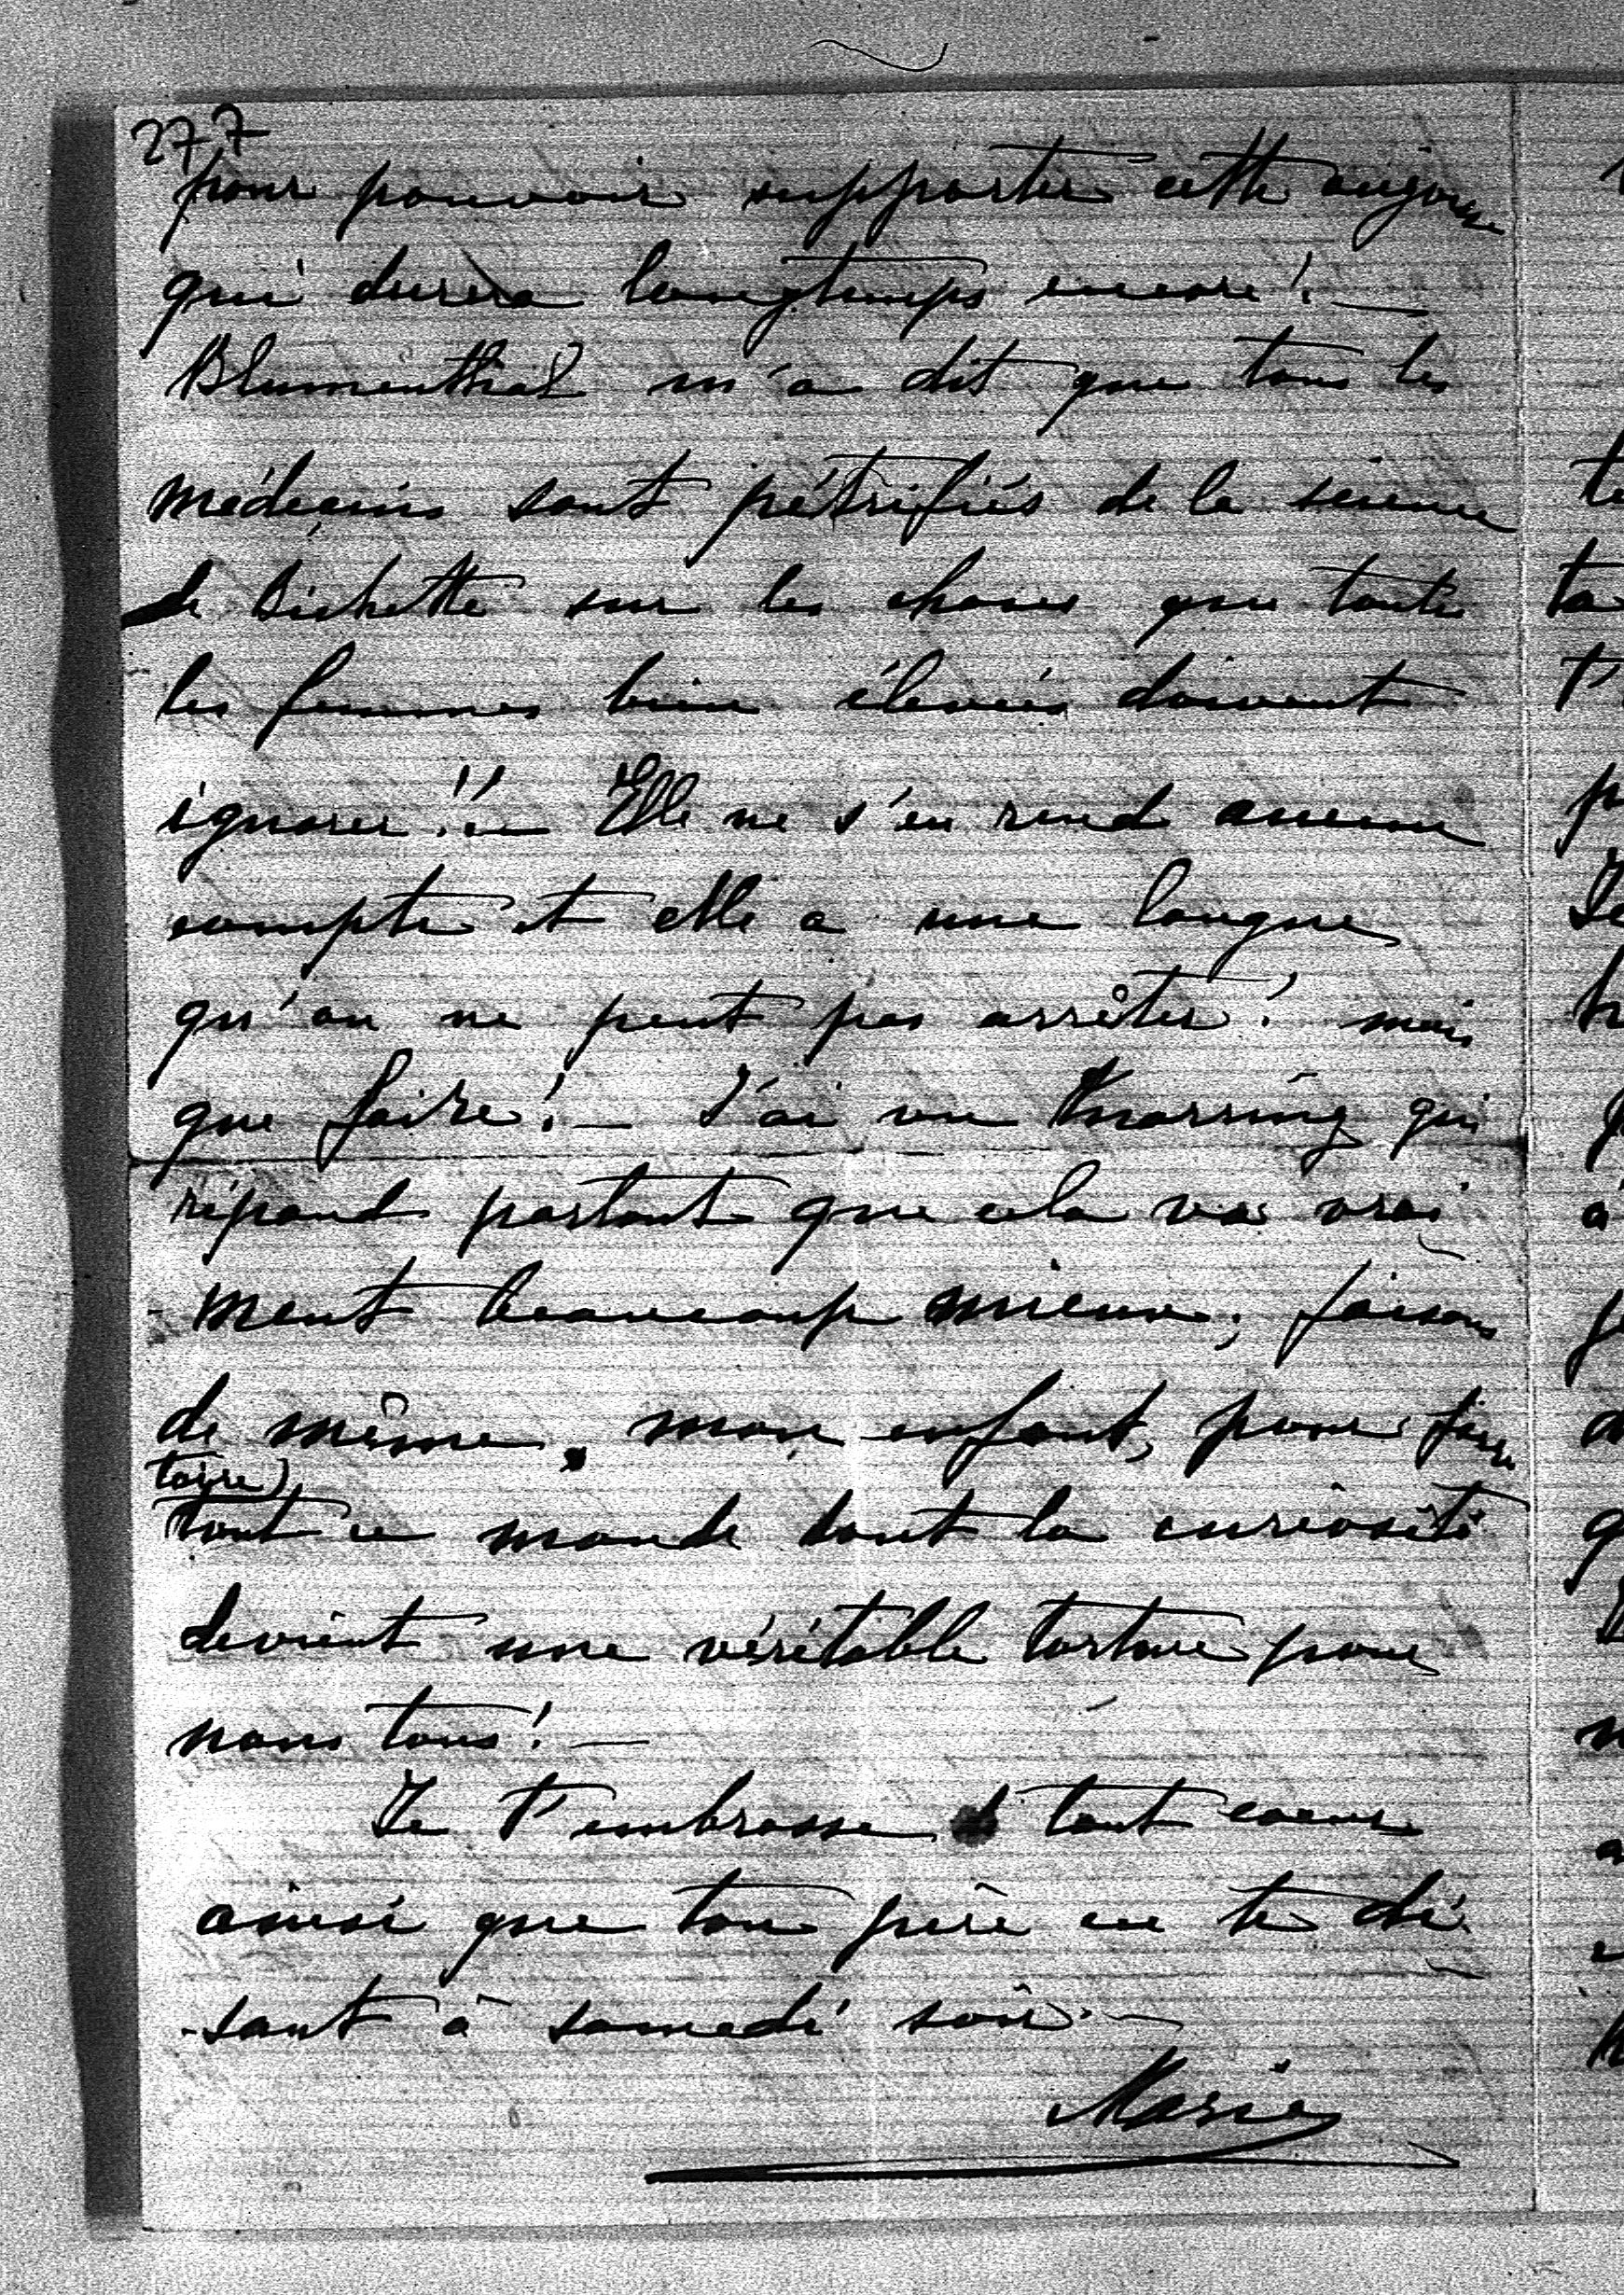 277
pour pouvoir supporter cette angoisse
qui durera longtemps encore! —
Blumenthal m'a dit que tous les
médecins sont pétrifiés de la science
de Bichette sur les choses que toutes
les femmes bien élevées doivent
ignorer!! — Elle ne s'en rend aucun
compte et elle a une langue
qu'on ne peut pas arrêter! mais
que faire! — J'ai vu qui
répand partout que cela va vrai
- ment beaucoup mieux; faisons
de même, mon enfant, pour faire
taire
tout ce monde dont la curiosité
devient une véritable torture pour
nous tous! —
Je t'embrasse de tout coeur
ainsi que ton père en te di-
-sant à samedi soir. —
Marie